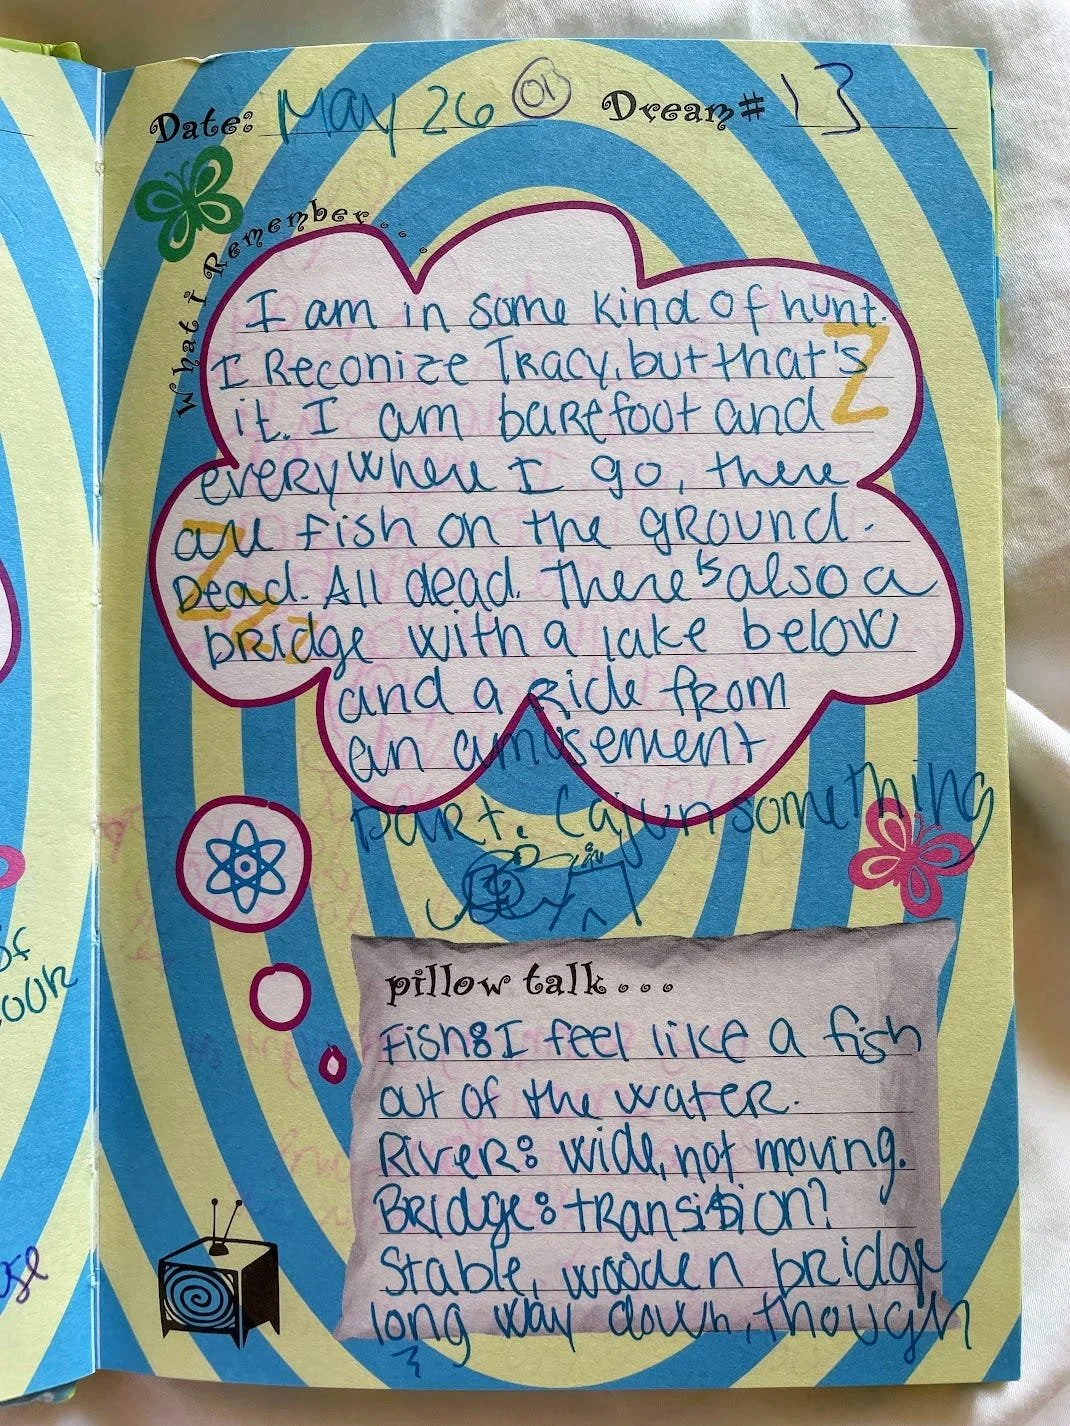 Date: MAY 26 01 Dream# 13
What I Remember...
I am in some kind of hunt.
I Reconize Tracy, but that's
it. I am barefoot and
everywhere I go, there
are fish on the ground.
Dead. All dead. There's also a
bridge with a lake below
and a Ride from
an amusement
part. Cajun something
pillow talk...
Fish: I feel like a fish
out of the water.
River: wide, not moving.
Bridge: transision?
Stable, wooden bridge
long way down, though
of